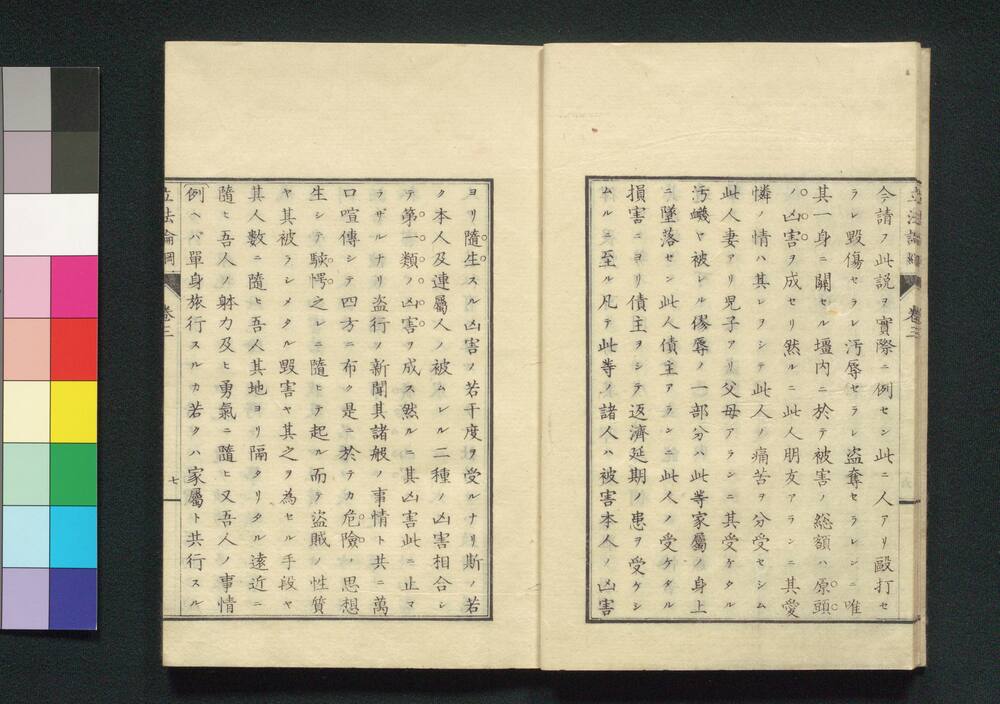 今請フ此説ヲ實際ニ例セン此ニ人アリ毆打セ
ラレ毀傷セラレ汚辱セラレ盜奪セラレンニ唯
其一身ニ關セル壃内ニ於テ被害ノ総額ハ原頭
ノ凶害ヲ成セリ然ルニ此人朋友アランニ其愛
憐ノ情ハ其レヲシテ此人ノ痛苦ヲ分受セシム
此人妻アリ児子アリ父母アランニ其受ケタル
汚衊ヤ被レル僇辱ノ一部分ハ此等家屬ノ身上
ニ墜落セン此人債主アランニ此人ノ受ケタル
損害ニヨリ債主ヲシテ返濟延期ノ患ヲ受ケシ
ムルニ至ル凡テ此等ノ諸人ハ被害本人ノ凶害
ヨリ隨生スル凶害ノ若干度ヲ受ルナリ斯ノ若
ク本人及連屬人ノ被ムレル二種ノ凶害相合シ
テ第一類ノ凶害ヲ成ス然ルニ其凶害此ニ止マ
ラザルナリ盜行ノ新聞其諸般ノ事情ト共ニ萬
口喧傳シテ四方ニ布ク是ニ於テカ危險ノ思想
生シテ駭愕之レニ隨ヒテ起ル而テ盜賊ノ性質
ヤ其被ラシメタル毀害ヤ其之ヲ為セル手段ヤ
其人數ニ隨ヒ吾人其地ヨリ隔タリタル遠近ニ
隨ヒ吾人ノ躰力及ヒ勇氣ニ隨ヒ又吾人ノ事情
例ヘバ單身旅行スルカ若クハ家屬ト共行スル
立法論綱
卷三
七